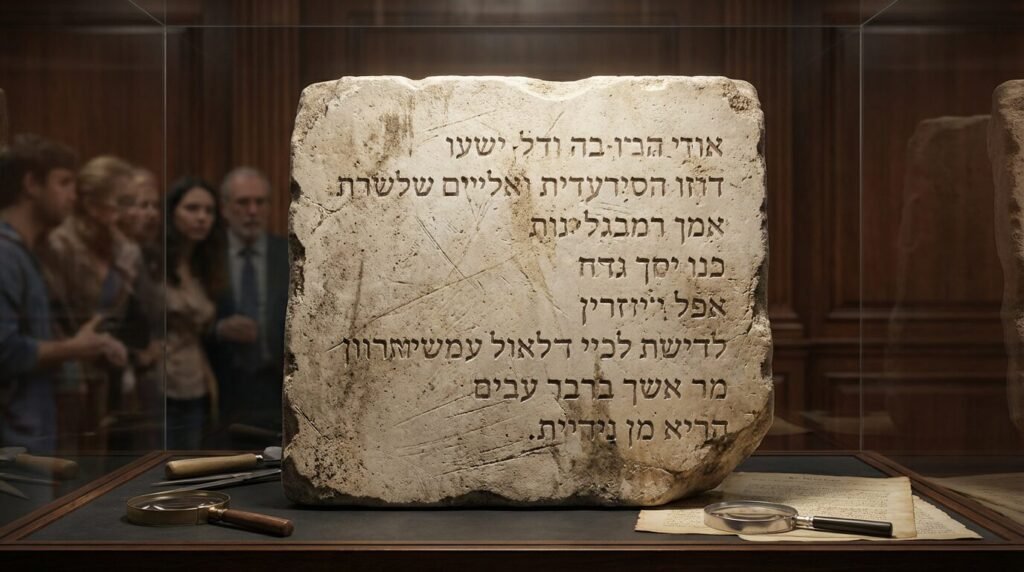 אודי הבין-בה ודל- ישעו
דוזו הסירעדית ואליים שלשרת
אמן רמבגלינות
כנו יסך גדח
אפל וייוזרין
לדישת לכיי דלאול
מר אשך ברבר עבים
הריא מן נידיית.